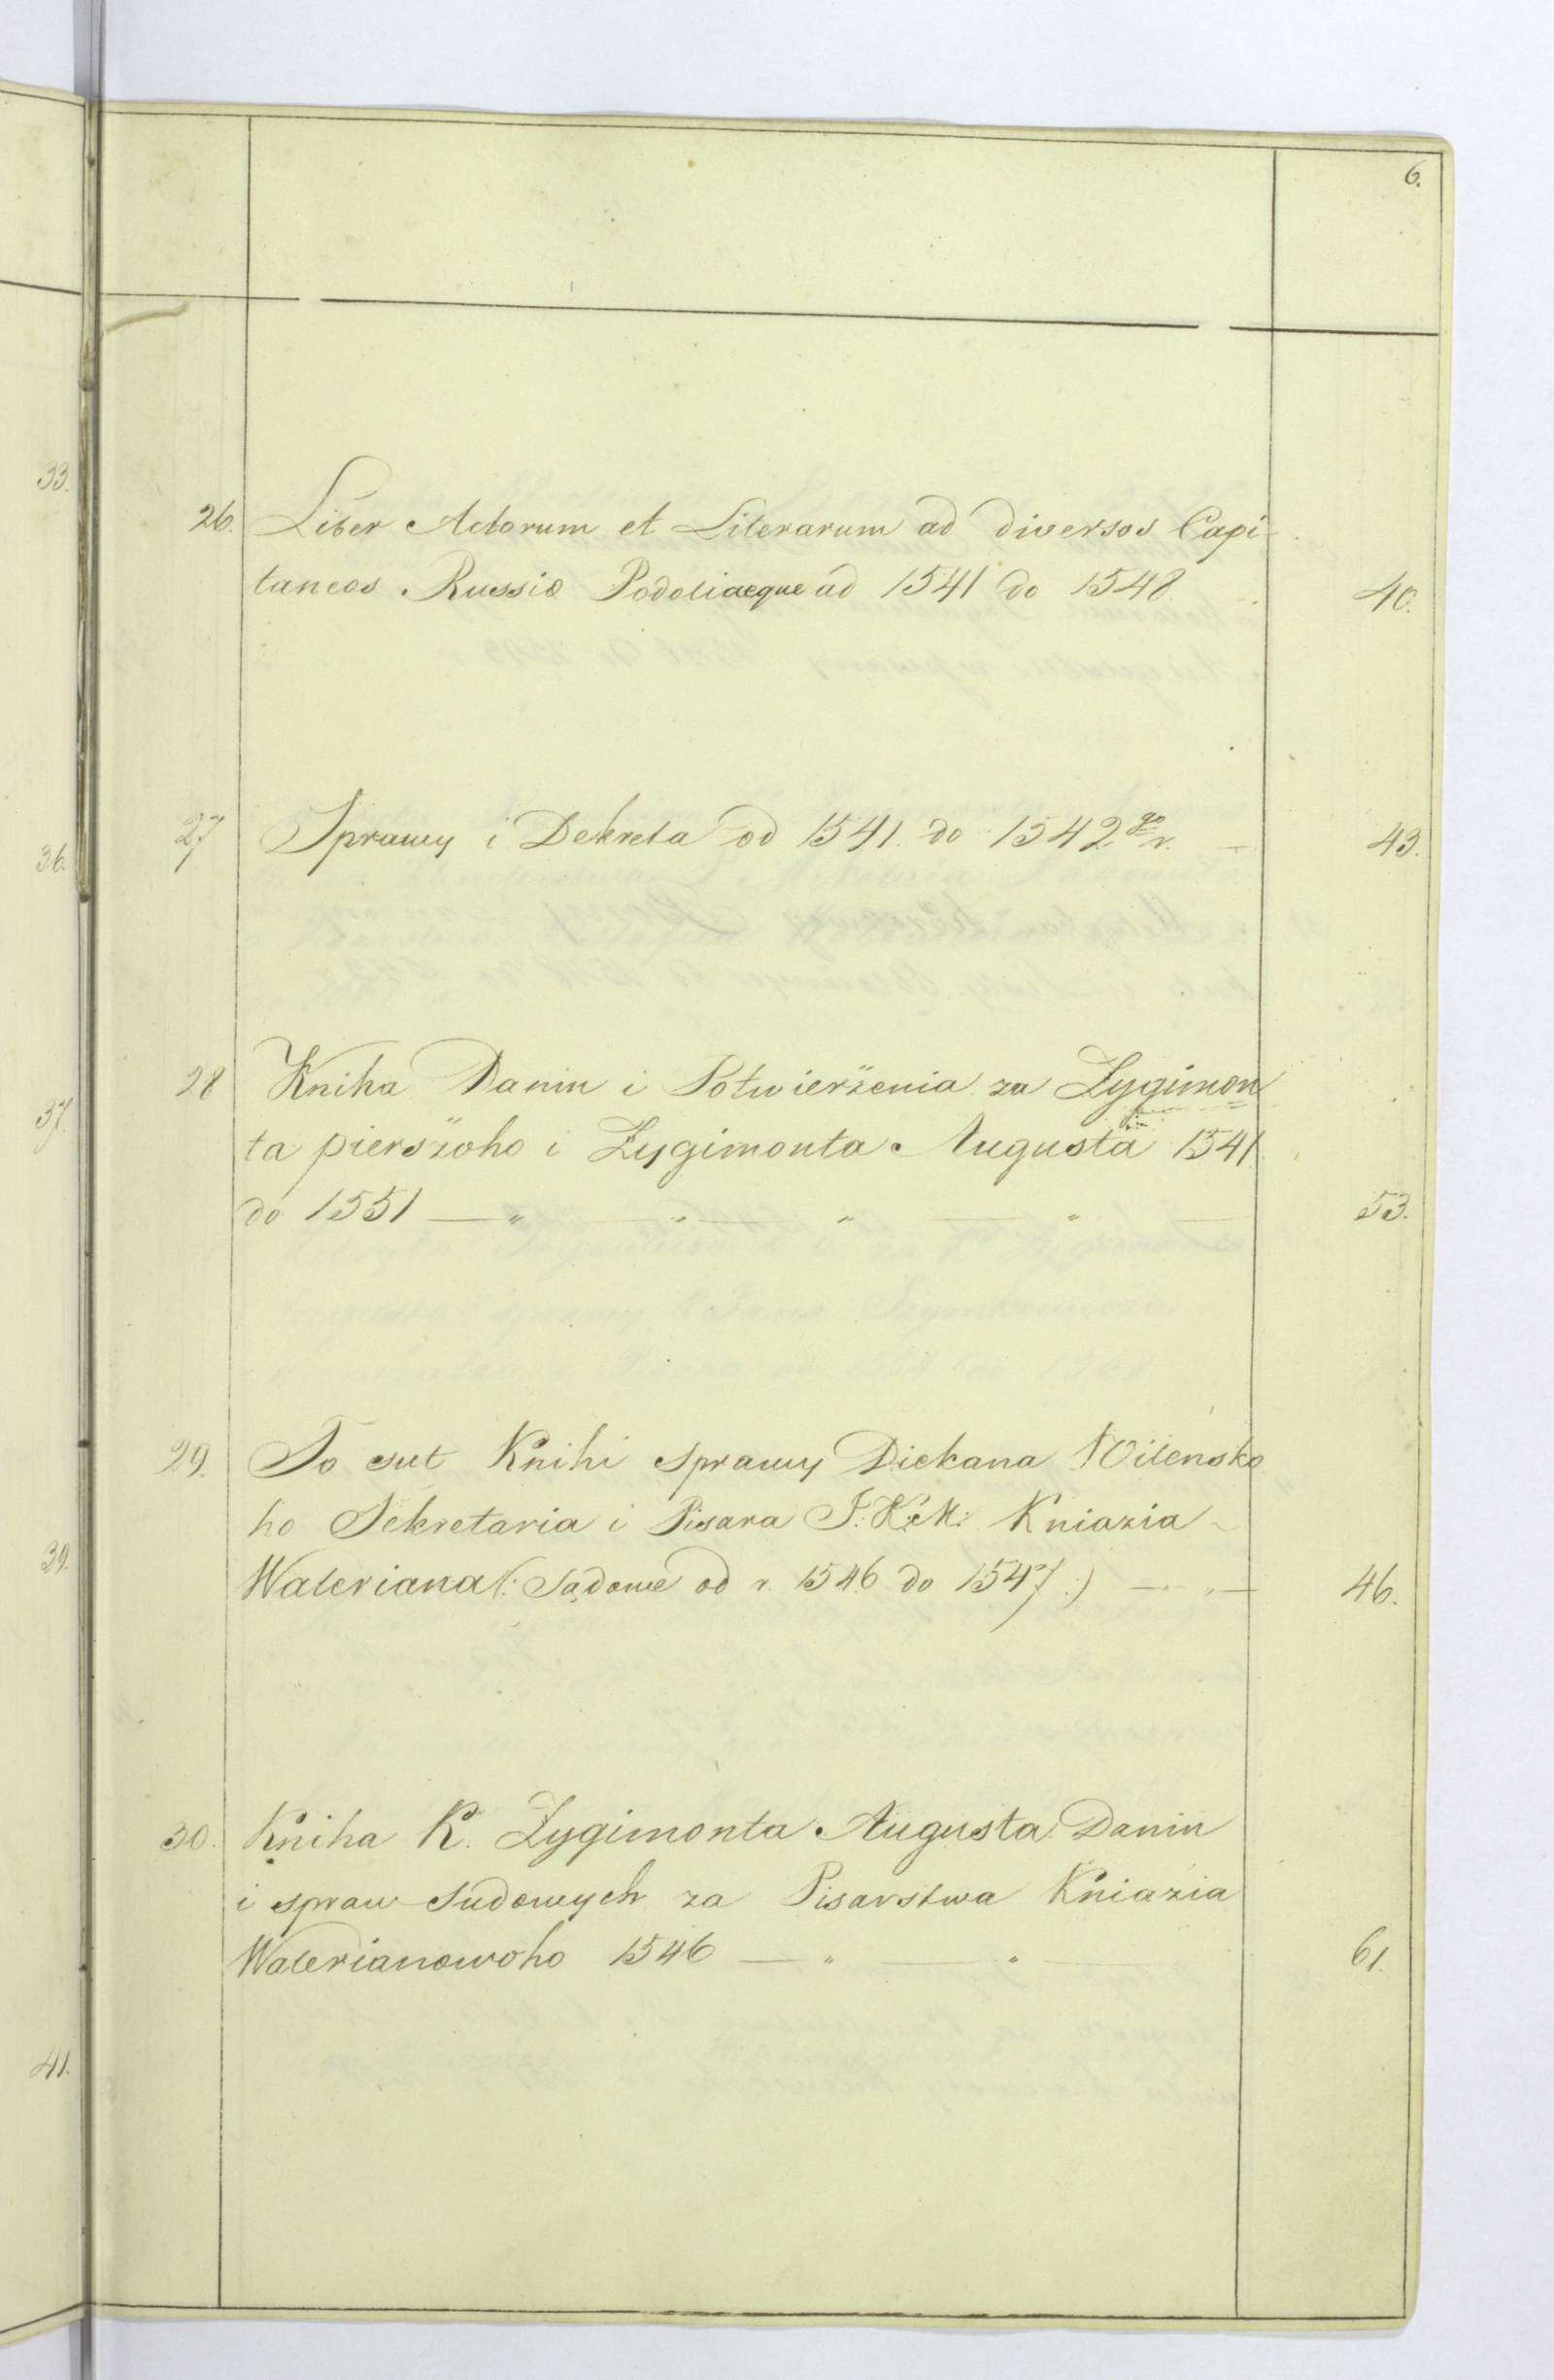 6.
26. Liber Actorum et Literarum ad diversos Capi-
taneos Russiæ Podoliaeque ad 1541 do 1548. 40.
27 Sprawy i Dekreta od 1541. do 1542go r. 43.
28 Kniha Danin i Potwierżenia za Zygimon
ta pierszoho i Zygimonta Augusta 1541
do 1551 — " — " — " — " — 53.
29. To sut Knihi Sprawy Diekana Wilensko
ho Sekretaria i Pisara J: K: M: Kniazia
Waleriana (: Sądowe od r. 1546 do 1547 :) — " — 46.
30. Kniha K. Zygimonta Augusta Danin
i spraw Sudowych za Pisarstwa Kniazia
Walerianowoho 1546 — " — " — 61.
33.
36.
37.
39.
41.